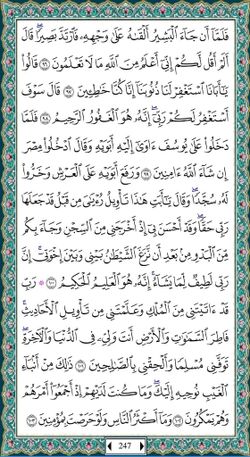 فَلَمَّا أَن جَاءَ الْبَشِيرُ أَلْقَىٰهُ عَلَىٰ وَجْهِهِ فَارْتَدَّ بَصِيرًا قَالَ
أَلَمْ أَقُل لَّكُمْ إِنِّي أَعْلَمُ مِنَ اللَّهِ مَا لَا تَعْلَمُونَ ٩٦ قَالُوا
يَٰأَبَانَا اسْتَغْفِرْ لَنَا ذُنُوبَنَا إِنَّا كُنَّا خَٰطِـِٔينَ ٩٧ قَالَ سَوْفَ
أَسْتَغْفِرُ لَكُمْ رَبِّي إِنَّهُ هُوَ الْغَفُورُ الرَّحِيمُ ٩٨ فَلَمَّا
دَخَلُوا عَلَىٰ يُوسُفَ ءَاوَىٰ إِلَيْهِ أَبَوَيْهِ وَقَالَ ادْخُلُوا مِصْرَ
إِن شَاءَ اللَّهُ ءَامِنِينَ ٩٩ وَرَفَعَ أَبَوَيْهِ عَلَى الْعَرْشِ وَخَرُّوا
لَهُ سُجَّدًا وَقَالَ يَٰأَبَتِ هَٰذَا تَأْوِيلُ رُءْيَٰيَ مِن قَبْلُ قَدْ جَعَلَهَا
رَبِّي حَقًّا وَقَدْ أَحْسَنَ بِي إِذْ أَخْرَجَنِي مِنَ السِّجْنِ وَجَاءَ بِكُم
مِّنَ الْبَدْوِ مِن بَعْدِ أَن نَّزَغَ الشَّيْطَٰنُ بَيْنِي وَبَيْنَ إِخْوَتِي إِنَّ
رَبِّي لَطِيفٌ لِّمَا يَشَاءُ إِنَّهُ هُوَ الْعَلِيمُ الْحَكِيمُ ١٠٠ رَبِّ
قَدْ ءَاتَيْتَنِي مِنَ الْمُلْكِ وَعَلَّمْتَنِي مِن تَأْوِيلِ الْأَحَادِيثِ
فَاطِرَ السَّمَٰوَٰتِ وَالْأَرْضِ أَنتَ وَلِيِّۦ فِي الدُّنْيَا وَالْءَاخِرَةِ
تَوَفَّنِي مُسْلِمًا وَأَلْحِقْنِي بِالصَّٰلِحِينَ ١٠١ ذَٰلِكَ مِنْ أَنبَاءِ
الْغَيْبِ نُوحِيهِ إِلَيْكَ وَمَا كُنتَ لَدَيْهِمْ إِذْ أَجْمَعُوا أَمْرَهُمْ
وَهُمْ يَمْكُرُونَ ١٠٢ وَمَا أَكْثَرُ النَّاسِ وَلَوْ حَرَصْتَ بِمُؤْمِنِينَ ١٠٣
247